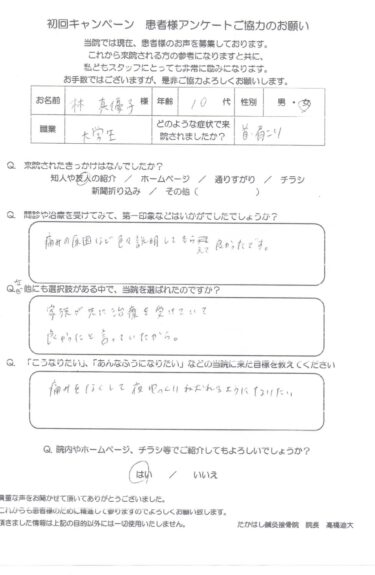 初回キャンペーン 患者様アンケートご協力のお願い
当院では現在、患者様のお声を募集しております。
これから来院される方の参考になりますと共に、
私どもスタッフにとっても非常に励みになります。
お手数ではございますが、是非ご協力よろしくお願いします。
お名前 林 真優子 様 年齢 10 代 性別 男・女
職業 大学生 どのような症状で来院されましたか? 首肩こり
Q. 来院されたきっかけはなんでしたか?
知人や友人の紹介 / ホームページ / 通りすがり / チラシ
新聞折り込み / その他( )
Q. 問診や治療を受けてみて、第一印象などはいかがでしたでしょうか?
痛みの原因など色々説明してもらえて良かったです。
Q. なぜ他にも選択肢がある中で、当院を選ばれたのですか?
家族が先に治療を受けていて
良かったと言っていたから。
Q. 「こうなりたい」、「あんなふうになりたい」などの当院に来た目標を教えてください
痛みをなくして夜ゆっくりねむれるようになりたい
Q. 院内やホームページ、チラシ等でご紹介してもよろしいでしょうか?
はい / いいえ
貴重な声をお聞かせて頂いてありがとうございました。
これからも患者様のために精進して参りますのでよろしくお願い致します。
頂きました情報は上記の目的以外には一切使用いたしません。 たかはし鍼灸接骨院 院長 高橋迪大